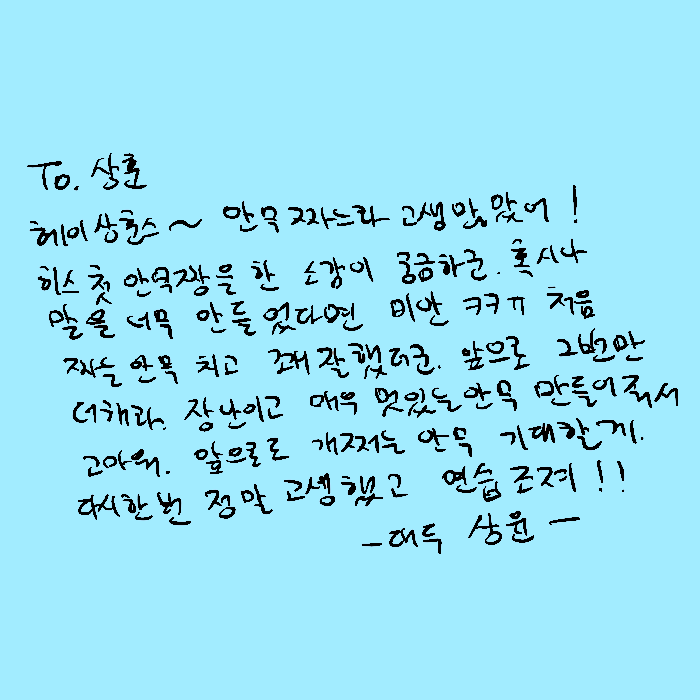 To. 상훈
헤이상훈스~ 안무 짜느라 고생많았어!
히스 첫 안무짱을 한 소감이 궁금하군. 혹시나
말을 너무 안들었다면 미안 ㅋㅋㅠ 처음
짜는 안무 치고 꽤 잘했더군. 앞으로 2번만
더해라. 장난이고 매우 멋있는 안무 만들어줘서
고마워. 앞으로도 개쩌는 안무 기대할게.
다시한번 정말 고생했고 연습조져!!
-대두 상윤-